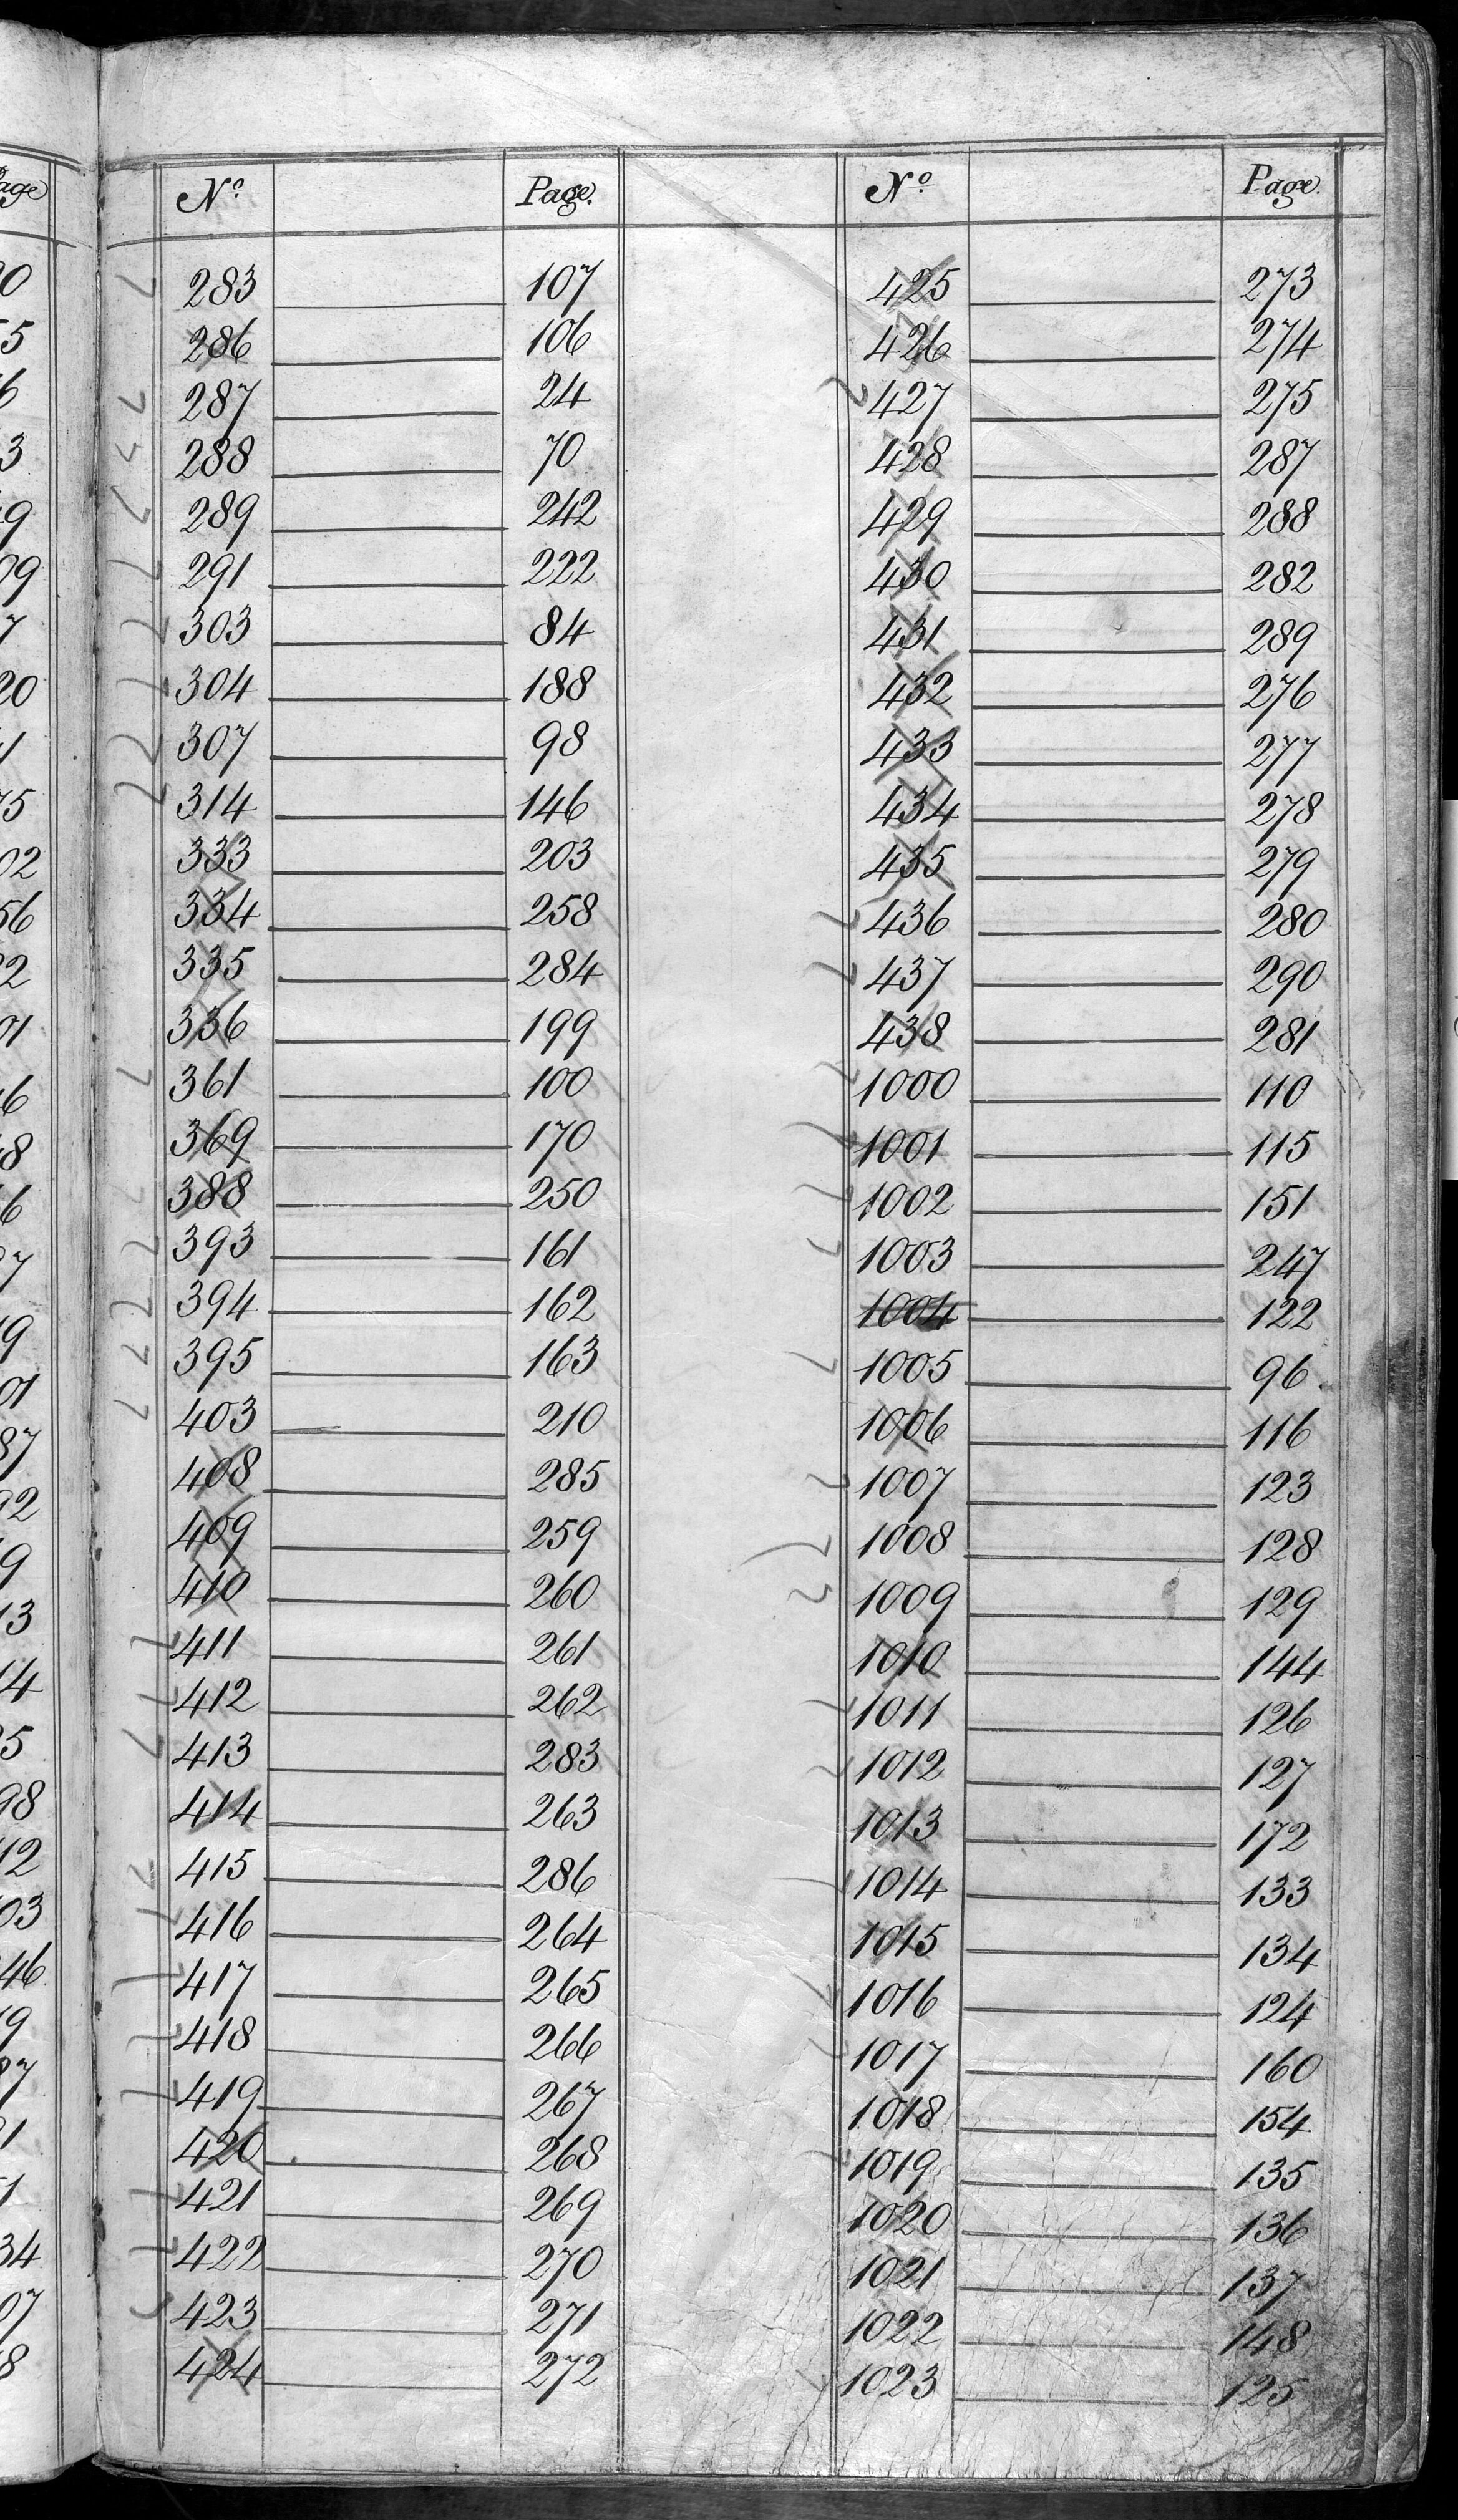 Nº Page. Nº Page.
283 107 425 273
286 106 426 274
287 24 427 275
288 70 428 287
289 242 429 288
291 222 430 282
303 84 431 289
304 188 432 276
307 98 433 277
314 146 434 278
333 203 435 279
334 258 436 280
335 284 437 290
336 199 438 281
361 100 1000 110
369 170 1001 115
388 250 1002 151
393 161 1003 247
394 162 1004 122
395 163 1005 96
403 210 1006 116
408 285 1007 123
409 259 1008 128
410 260 1009 129
411 261 1010 144
412 262 1011 126
413 283 1012 127
414 263 1013 172
415 286 1014 133
416 264 1015 134
417 265 1016 124
418 266 1017 160
419 267 1018 154
420 268 1019 135
421 269 1020 136
422 270 1021 137
423 271 1022 148
424 272 1023 125